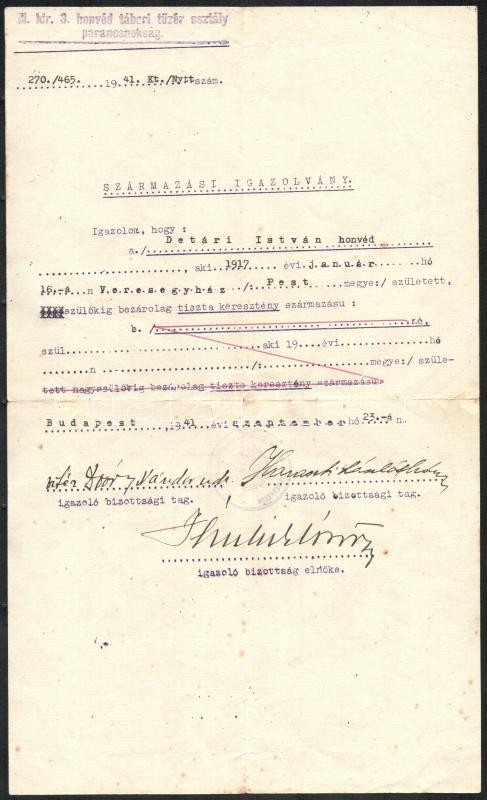 M. kir. 3. honvéd tábori tüzér osztály
parancsnokság.
270./465. 1941. Kt./Nytt szám.
SZÁRMAZÁSI IGAZOLVÁNY.
Igazolom, hogy :
a./ Detári István honvéd
, aki 1917 évi január hó
16.-á n Veresegyház /: Pest megye:/ született,
szülőkig bezárolag tiszta keresztény származásu :
b. / nő,
szül. aki 19 évi hó
n /: megye:/ szüle-
tett nagyszülőkig bezárolag tiszta keresztény származásu.
Budapest , 1941 évi szeptember hó 23.-á n.
Nándor
igazoló bizottsági tag. igazoló bizottsági tag.
igazoló bizottság elnöke.